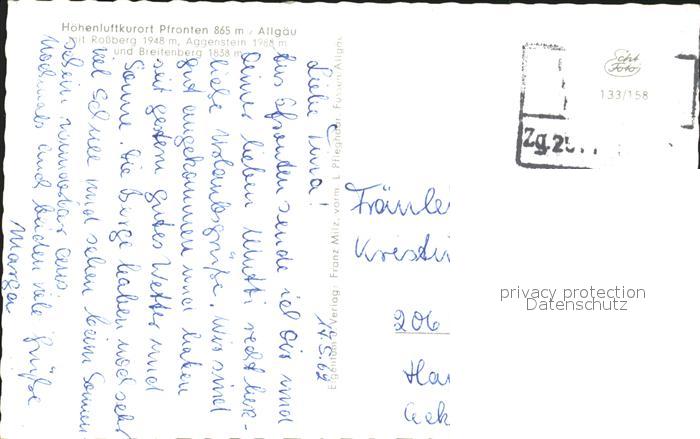 Höhenluftkurort Pfronten 865 m, Allgäu
mit Roßberg 1948 m, Aggenstein 1988 m
und Breitenberg 1838 m
17.5.62
Liebe !
Aus Pfronten sende ich Dir und
Deiner lieben Mutti recht herz-
liebe Urlaubsgrüße. Wir sind
gut angekommen und haben
seit gestern gutes Wetter und
Sonne. Die Berge haben noch sehr
viel Schnee und sehen beim Sonnen
schein wunderbar aus.
Nochmals Euch beiden viele Grüße
Marga
Eigentum u. Verlag: Franz Milz, vorm. L. Pfleghaar, Füssen, Allgäu
Echt
Foto
133/158
Zg.2
Fräule
Kristi
206
Ha
privacy protection
Datenschutz